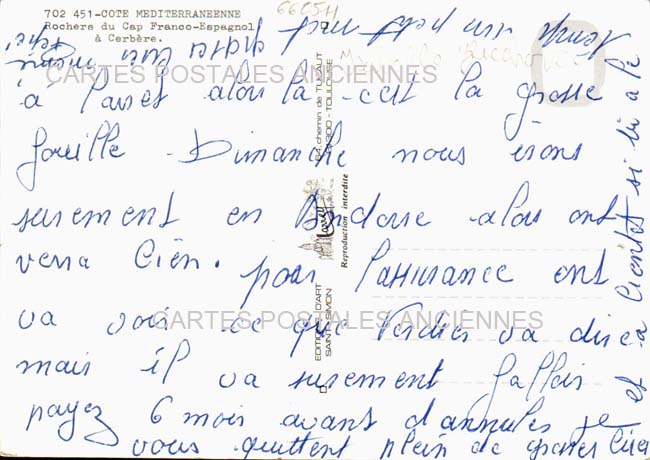 702 451-COTE MEDITERRANEENNE
Rochers du Cap Franco-Espagnol
à Cerbère.
66254
CARTES POSTALES ANCIENNES
à l'arret alors la c'est la grosse
fouille - Dimanche nous irons
surement en Andorre alors ont
verra bien. pour l'assurance ont
va voir ce que Verdier va dire
mais il va surement falloir
payez 6 mois avant d'annules je
vous quittent plein de grosses bises
et a bientot si tu a le
CARTES POSTALES ANCIENNES
EDITIONS D'ART
SAINT-SIMON
Larrey
Reproduction interdite
chemin de TUCAUT
TOULOUSE